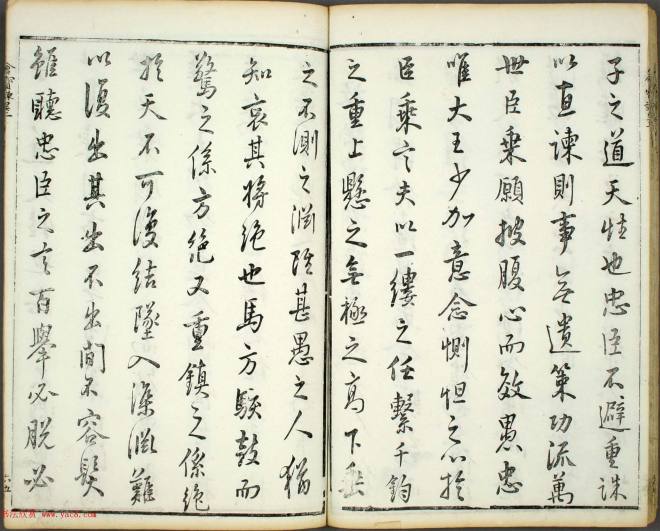 子之道天性也忠臣不避重誅
以直諫則事無遺策功流萬
世臣乘願披腹心而效愚忠
唯大王少加意念惻怛之心於
臣乘言夫以一縷之任繫千鈞
之重上懸之無極之高下垂
之不測之淵雖甚愚之人猶
知哀其將絕也馬方駭鼓而
驚之係方絕又重鎮之係絕
於天不可復結墜入深淵難
以復出其出不出間不容髮
聽忠臣之言百舉必脫必
六五
书法欣赏 www.yac8.com